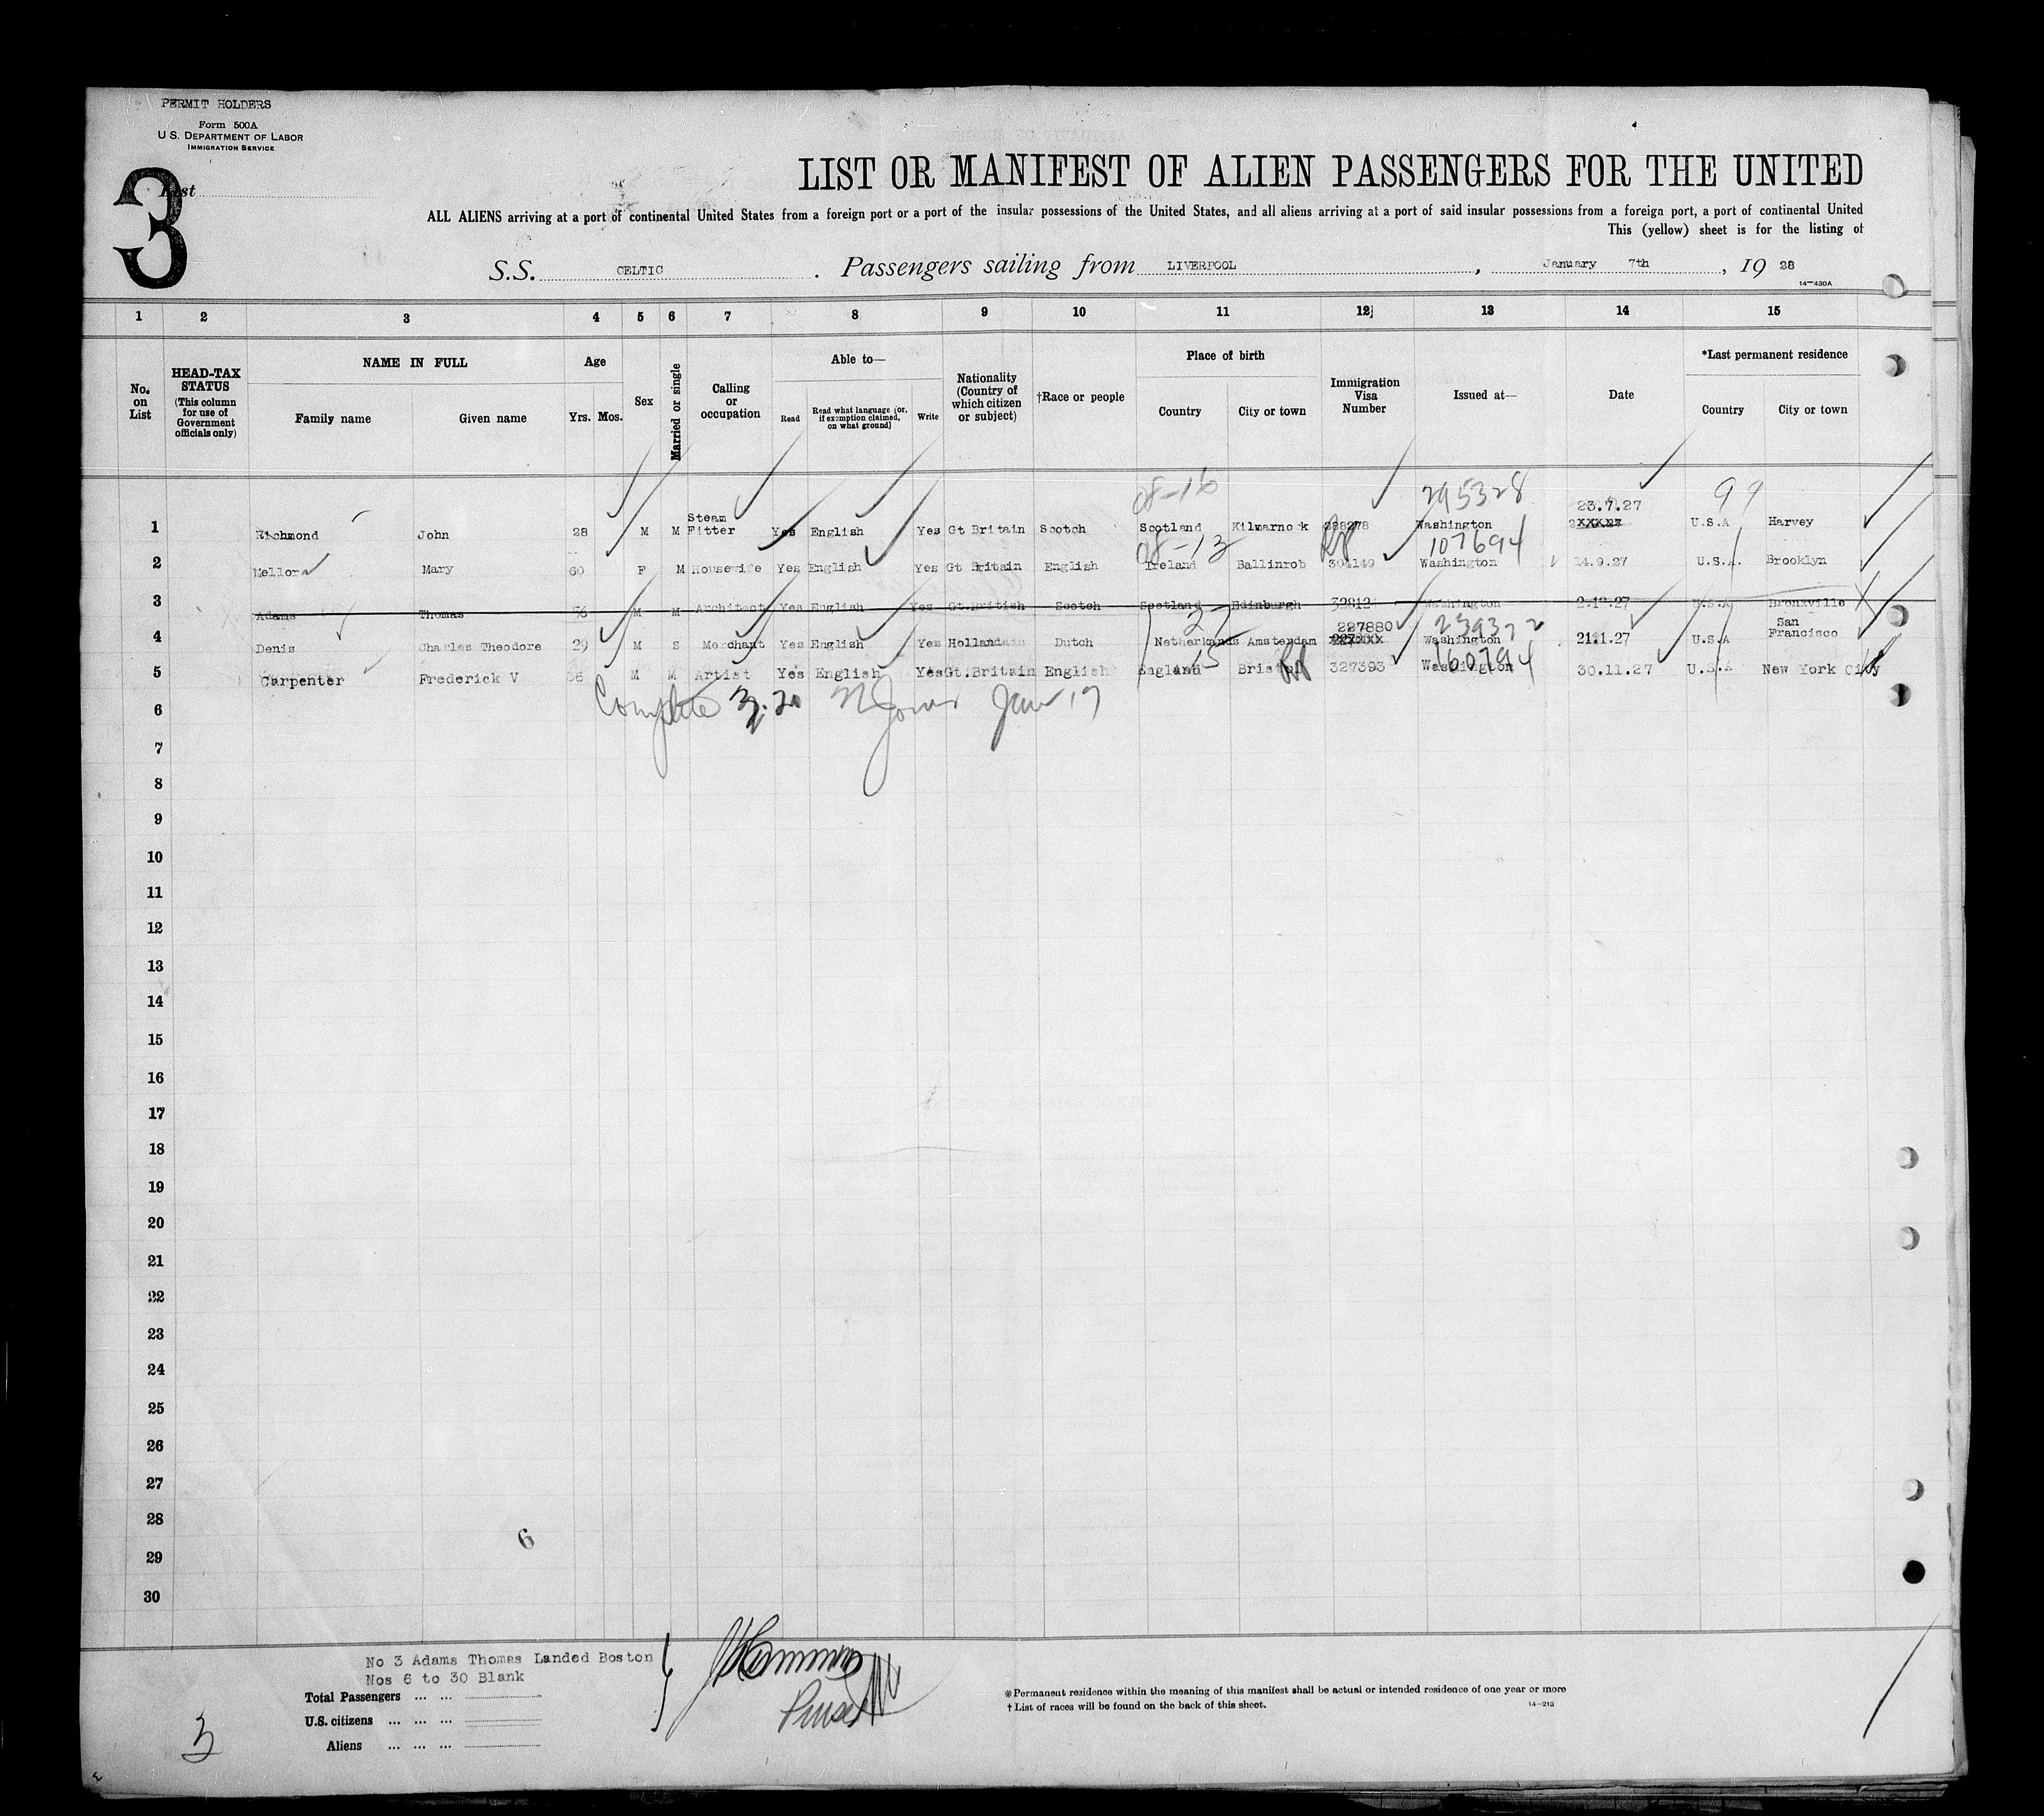 PERMIT HOLDERS
Form 500A
U.S. DEPARTMENT OF LABOR
IMMIGRATION SERVICE
3
List
LIST OR MANIFEST OF ALIEN PASSENGERS FOR THE UNITED
ALL ALIENS arriving at a port of continental United States from a foreign port or a port of the insular possessions of the United States, and all aliens arriving at a port of said insular possessions from a foreign port, a port of continental United
This (yellow) sheet is for the listing of
S.S. CELTIC. Passengers sailing from LIVERPOOL, January 7th, 19 28
14—430A
1 2 3 4 5 6 7 8 9 10 11 12 13 14 15
No. on List
HEAD-TAX STATUS (This column for use of Government officials only)
NAME IN FULL
Family name Given name
Age
Yrs. Mos.
Sex
Married or single
Calling or occupation
Able to—
Read Read what language [or, if exemption claimed, on what ground] Write
Nationality (Country of which citizen or subject)
†Race or people
Place of birth
Country City or town
Immigration Visa Number
Issued at—
Date
*Last permanent residence
Country City or town
08-16 295328 23.7.27 99
1 Richmond John 28 M M Steam Fitter Yes English Yes Gt Britain Scotch Scotland Kilmarnock 328278 Washington U.S.A Harvey
08-13 107694
2 Mellor Mary 60 F M Housewife Yes English Yes Gt Britain English Ireland Ballinrob 304149 Washington 14.9.27 U.S.A. Brooklyn
3 Adams Thomas 56 M M Architect Yes English Yes Gt.British Scotch Scotland Edinburgh 32812 Washington 2.12.27 U.S.A Bronxville
27 227880 239372
4 Denis Charles Theodore 29 M S Merchant Yes English Yes Holland Dutch Netherlands Amsterdam Washington 21.1.27 U.S.A San Francisco
15 160794
5 Carpenter Frederick V 36 M M Artist Yes English Yes Gt.Britain English England Bristol 327393 Washington 30.11.27 U.S.A New York City
6 Complete Jones Jan 17
7
8
9
10
11
12
13
14
15
16
17
18
19
20
21
22
23
24
25
26
27
28
6
29
30
No 3 Adams Thomas Landed Boston
Nos 6 to 30 Blank
Total Passengers ... ...
U.S. citizens ... ... ...
Aliens ... ... ...
Purser
3
*Permanent residence within the meaning of this manifest shall be actual or intended residence of one year or more
† List of races will be found on the back of this sheet.
14—213